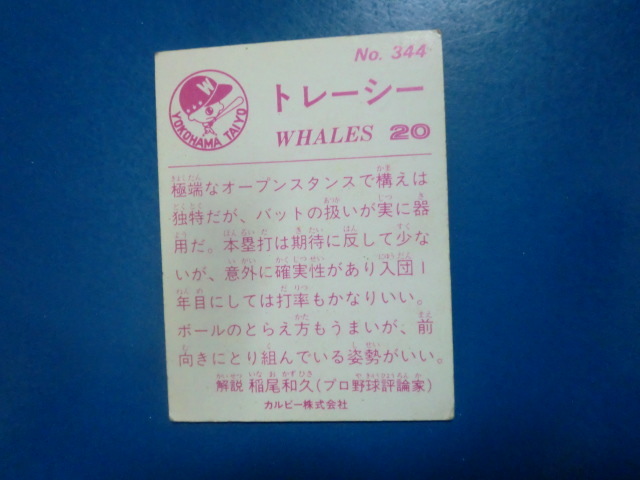 No. 344
W
YOKOHAMA TAIYO
トレーシー
WHALES 20
極端なオープンスタンスで構えは
独特だが、バットの扱いが実に器
用だ。本塁打は期待に反して少な
いが、意外に確実性があり入団1
年目にしては打率もかなりいい。
ボールのとらえ方もうまいが、前
向きにとり組んでいる姿勢がいい。
解説 稲尾和久(プロ野球評論家)
カルビー株式会社